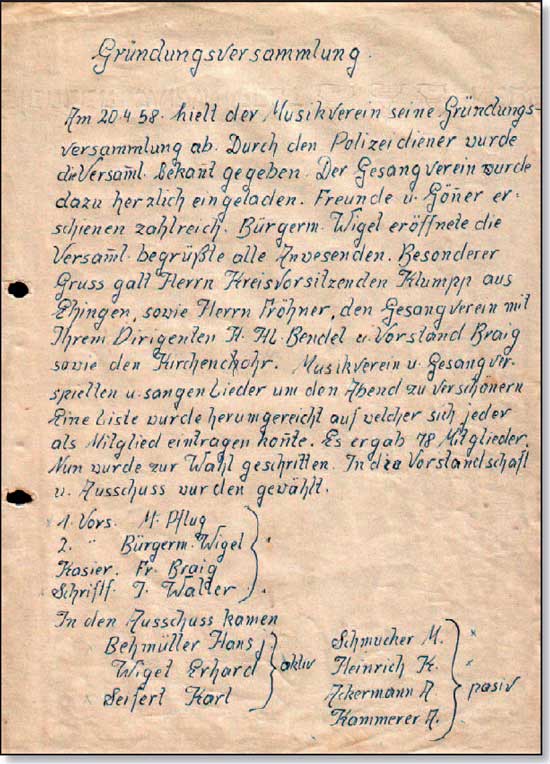 Gründungsversammlung.
Am 20.4.58. hielt der Musikverein seine Gründungs-
versammlung ab. Durch den Polizeidiener wurde
die Versam̄l. bekan̄t gegeben. Der Gesangverein wurde
dazu herzlich eingeladen. Freunde u. Gön̄er er-
schienen zahlreich. Bürgerm. Wigel eröffnete die
Versam̄l. begrüßte alle Anwesenden. Besonderer
Gruss galt Herrn Kreisvorsitzenden Klumpp aus
Ehingen, sowie Herrn Fröhner, den Gesangverein mit
Ihrem Dirigenten H. Hl. Bendel u. Vorstand Braig
sowie den Kirchenchohr. Musikverein u. Gesangver-
spielten u. sangen Lieder um den Abend zu verschönern
Eine Liste wurde herumgereicht auf welcher sich jeder
als Mitglied eintragen kon̄te. Es ergab 78 Mitglieder.
Nun wurde zur Wahl geschritten. In die Vorstandschaft
u. Ausschuss wurden gewählt.
1. Vors. M. Pflug
2. " Bürgerm. Wigel
Kasier. Fr. Braig
Schriftf. J. Walter
In den Ausschuss kamen
Behmüller Hans
Wigel Erhard
Seifert Karl
aktiv
Schmucker M.
Heinrich K.
Ackermann A.
Kammerer A.
pasiv